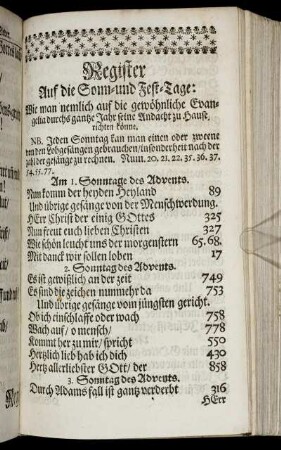 Register
Auf die Sonn-und Fest-Tage:
Wie man nemlich auf die gewöhnliche Evan-
gelia durchs gantze Jahr seine Andacht zu Hause
richten könne.
NB. Jeden Sonntag kan man einen oder zweene
von den Lobgesängen gebrauchen/insonderheit nach der
zahl der gesänge zu rechnen. Num. 20. 21. 22. 35. 36. 37.
54. 55. 77.
Am 1. Sonntage des Advents.
Nun komm der heyden Heyland 89
Und übrige gesänge von der Menschwerdung.
HErr Christ der einig GOttes 325
Nun freut euch lieben Christen 327
Wie schön leucht uns der morgenstern 65. 68.
Mit danck wir sollen loben 17
2. Sonntag des Advents.
Es ist gewißlich an der zeit 749
Es sind die zeichen nunmehr da 753
Und übrige gesänge vom jüngsten gericht.
Ob ich einschlaffe oder wach 758
Wach auf/ o mensch/ 778
Kommt her zu mir/ spricht 550
Hertzlich lieb hab ich dich 430
Hertz allerliebster GOtt/ der 858
3. Sonntag des Advents.
Durch Adams fall ist gantz verderbt 316
HErr